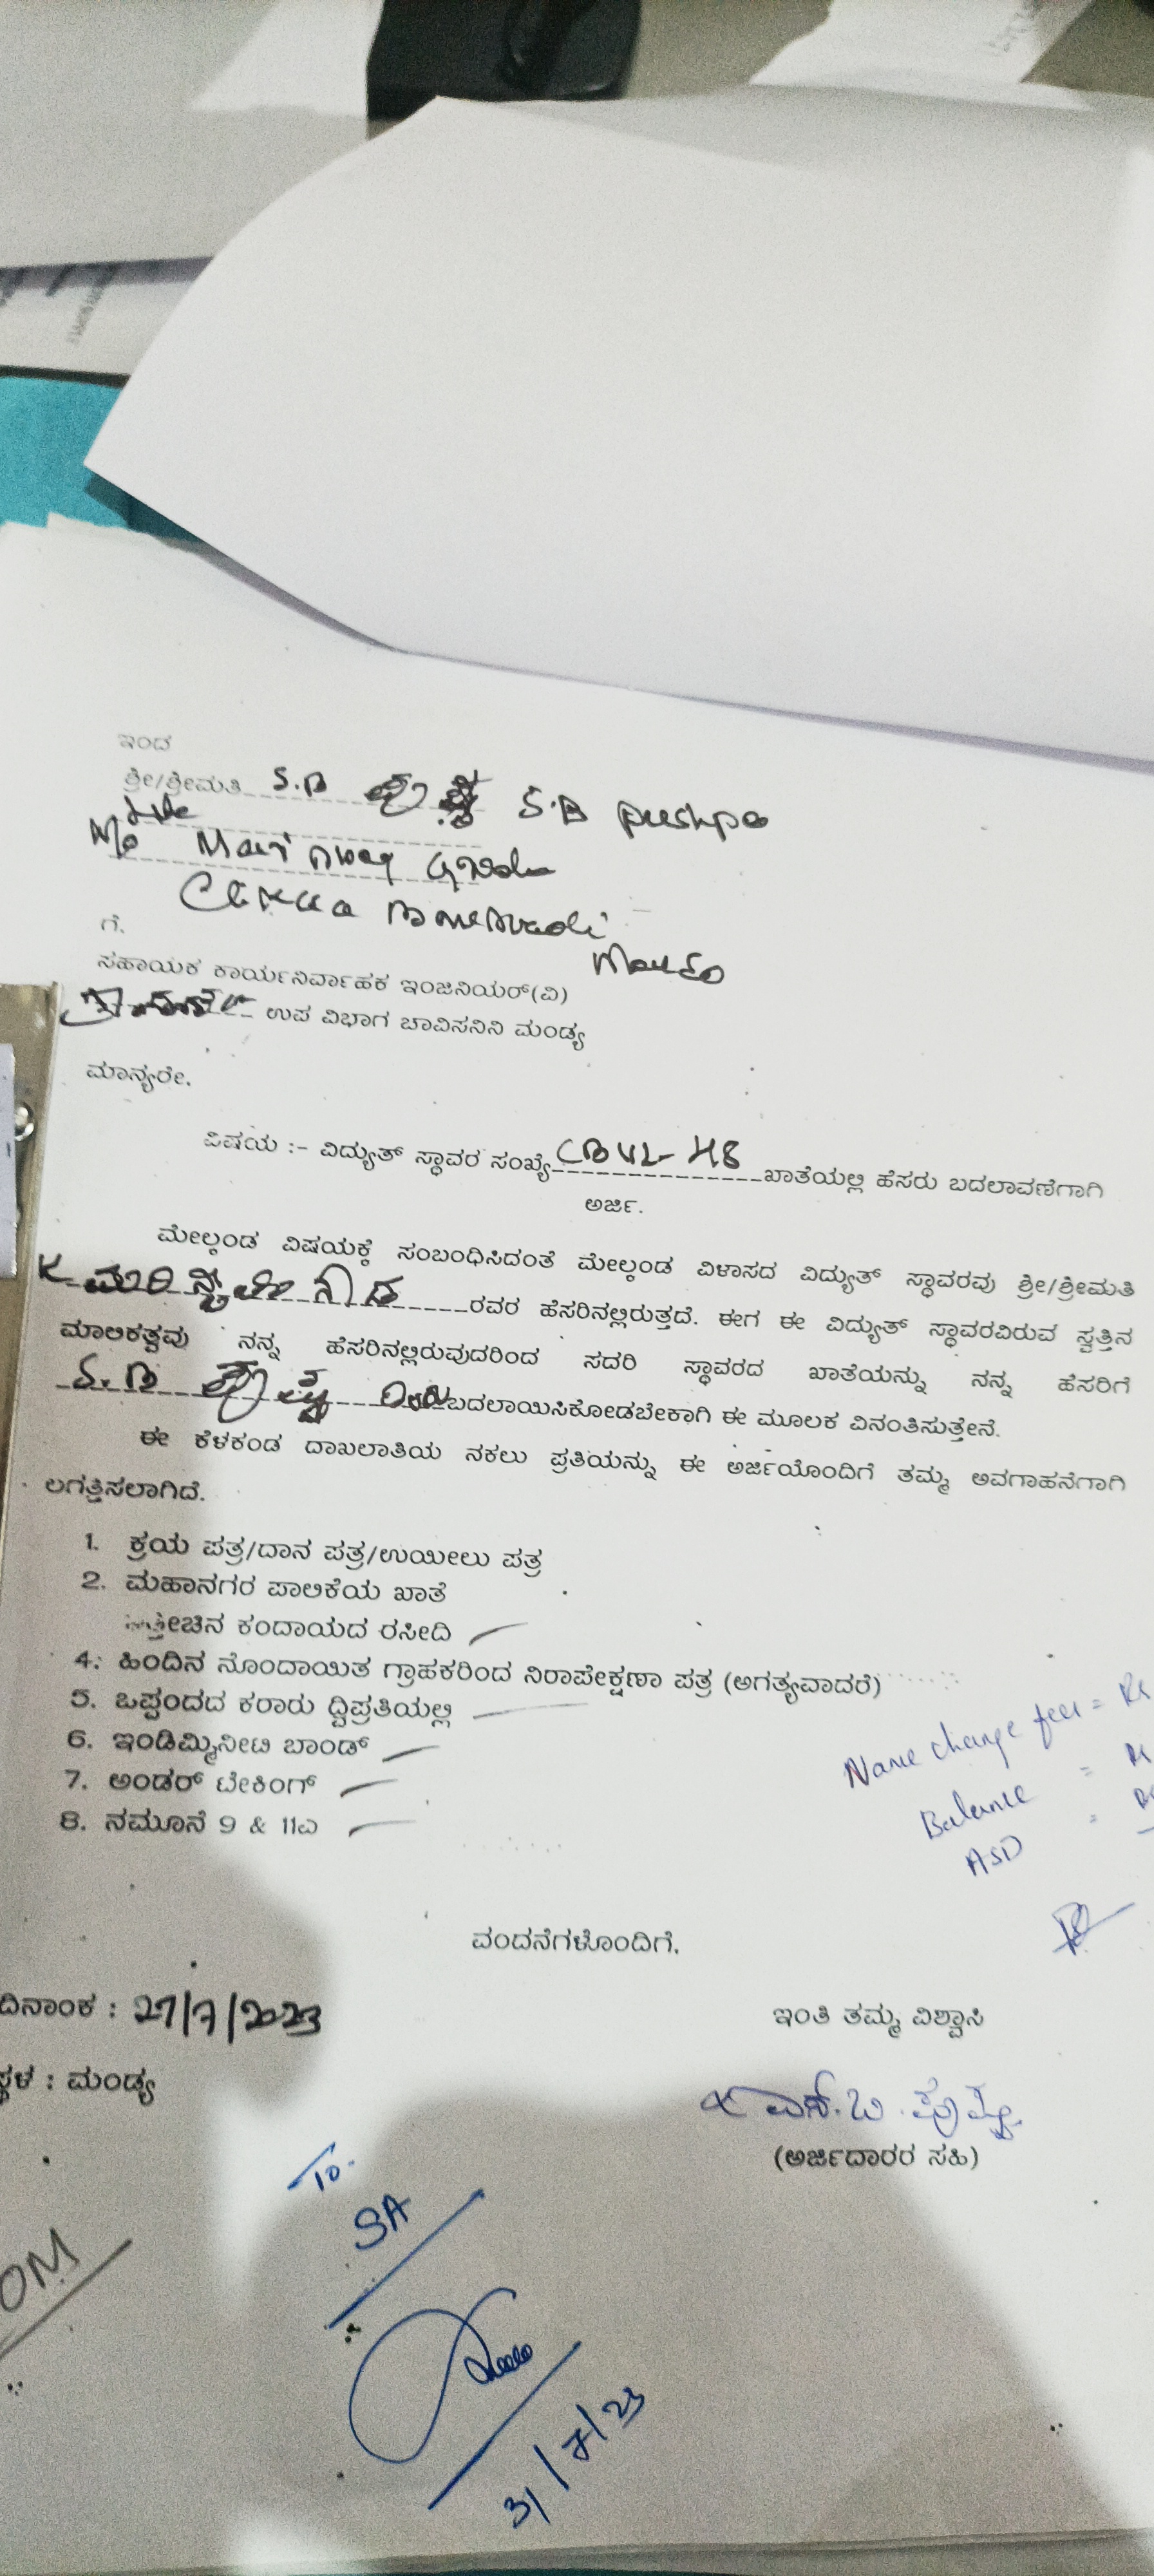 ಇಂದ
ಶ್ರೀ/ಶ್ರೀಮತಿ S.B ಪುಷ್ಪ S.B pushpa
ಗೆ.
ಸಹಾಯಕ ಕಾರ್ಯನಿರ್ವಾಹಕ ಇಂಜಿನಿಯರ್(ವಿ)
ಉಪ ವಿಭಾಗ ಚಾವಿಸನಿನಿ ಮಂಡ್ಯ
ಮಾನ್ಯರೇ.
ವಿಷಯ :- ವಿದ್ಯುತ್ ಸ್ಥಾವರ ಸಂಖ್ಯೆ ಖಾತೆಯಲ್ಲಿ ಹೆಸರು ಬದಲಾವಣೆಗಾಗಿ
ಅರ್ಜಿ.
ಮೇಲ್ಕಂಡ ವಿಷಯಕ್ಕೆ ಸಂಬಂಧಿಸಿದಂತೆ ಮೇಲ್ಕಂಡ ವಿಳಾಸದ ವಿದ್ಯುತ್ ಸ್ಥಾವರವು ಶ್ರೀ/ಶ್ರೀಮತಿ
ರವರ ಹೆಸರಿನಲ್ಲಿರುತ್ತದೆ. ಈಗ ಈ ವಿದ್ಯುತ್ ಸ್ಥಾವರವಿರುವ ಸ್ವತ್ತಿನ
ಮಾಲಿಕತ್ವವು ನನ್ನ ಹೆಸರಿನಲ್ಲಿರುವುದರಿಂದ ಸದರಿ ಸ್ಥಾವರದ ಖಾತೆಯನ್ನು ನನ್ನ ಹೆಸರಿಗೆ
S.B ಪುಷ್ಪ ಬದಲಾಯಿಸಿಕೋಡಬೇಕಾಗಿ ಈ ಮೂಲಕ ವಿನಂತಿಸುತ್ತೇನೆ.
ಈ ಕೆಳಕಂಡ ದಾಖಲಾತಿಯ ನಕಲು ಪ್ರತಿಯನ್ನು ಈ ಅರ್ಜಿಯೊಂದಿಗೆ ತಮ್ಮ ಅವಗಾಹನೆಗಾಗಿ
ಲಗತ್ತಿಸಲಾಗಿದೆ.
1. ಕ್ರಯ ಪತ್ರ/ದಾನ ಪತ್ರ/ಉಯೀಲು ಪತ್ರ
2. ಮಹಾನಗರ ಪಾಲಿಕೆಯ ಖಾತೆ
ಕಂದಾಯದ ರಸೀದಿ
4. ಹಿಂದಿನ ನೊಂದಾಯಿತ ಗ್ರಾಹಕರಿಂದ ನಿರಾಪೇಕ್ಷಣಾ ಪತ್ರ (ಅಗತ್ಯವಾದರೆ)
5. ಒಪ್ಪಂದದ ಕರಾರು ದ್ವಿಪ್ರತಿಯಲ್ಲಿ
6. ಇಂಡಿಮ್ನಿನೀಟಿ ಬಾಂಡ್
7. ಅಂಡರ್ ಟೇಕಿಂಗ್
8. ನಮೂನೆ 9 & 11ಎ
Name change fees = Rs
Balance =
ASD =
ವಂದನೆಗಳೊಂದಿಗೆ.
ದಿನಾಂಕ : 27/7/2023
ಇಂತಿ ತಮ್ಮ ವಿಶ್ವಾಸಿ
ಸ್ಥಳ : ಮಂಡ್ಯ
ಎಸ್.ಬಿ. ಪುಷ್ಪ
(ಅರ್ಜಿದಾರರ ಸಹಿ)
To.
SA
OM
31/7/23